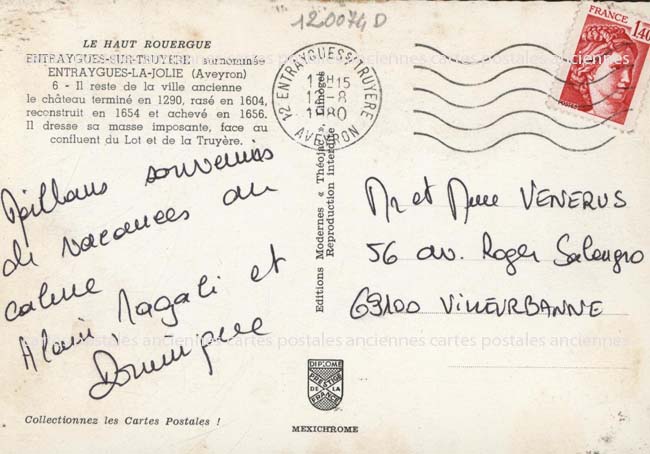 120074D
LE HAUT ROUERGUE
ENTRAYGUES-SUR-TRUYERE surnommée
ENTRAYGUES-LA-JOLIE (Aveyron)
6 - Il reste de la ville ancienne
le château terminé en 1290, rasé en 1604,
reconstruit en 1654 et achevé en 1656.
Il dresse sa masse imposante, face au
confluent du Lot et de la Truyère.
Meilleurs souvenirs
de vacances au
calme
Alain, Magali et
Dominique
Collectionnez les Cartes Postales !
12 ENTRAYGUES S/ TRUYERE
15
-8
1980
AVEYRON
Editions Modernes « Théojac », Limoges
Reproduction interdite
DIPLOME
PRESTIGE
DE LA
FRANCE
MEXICHROME
FRANCE
1,40
Mr et Mme VENERUS
56 av. Roger Salengro
69100 VILLEURBANNE
cartes postales anciennes cartes postales anciennes cartes postales anciennes